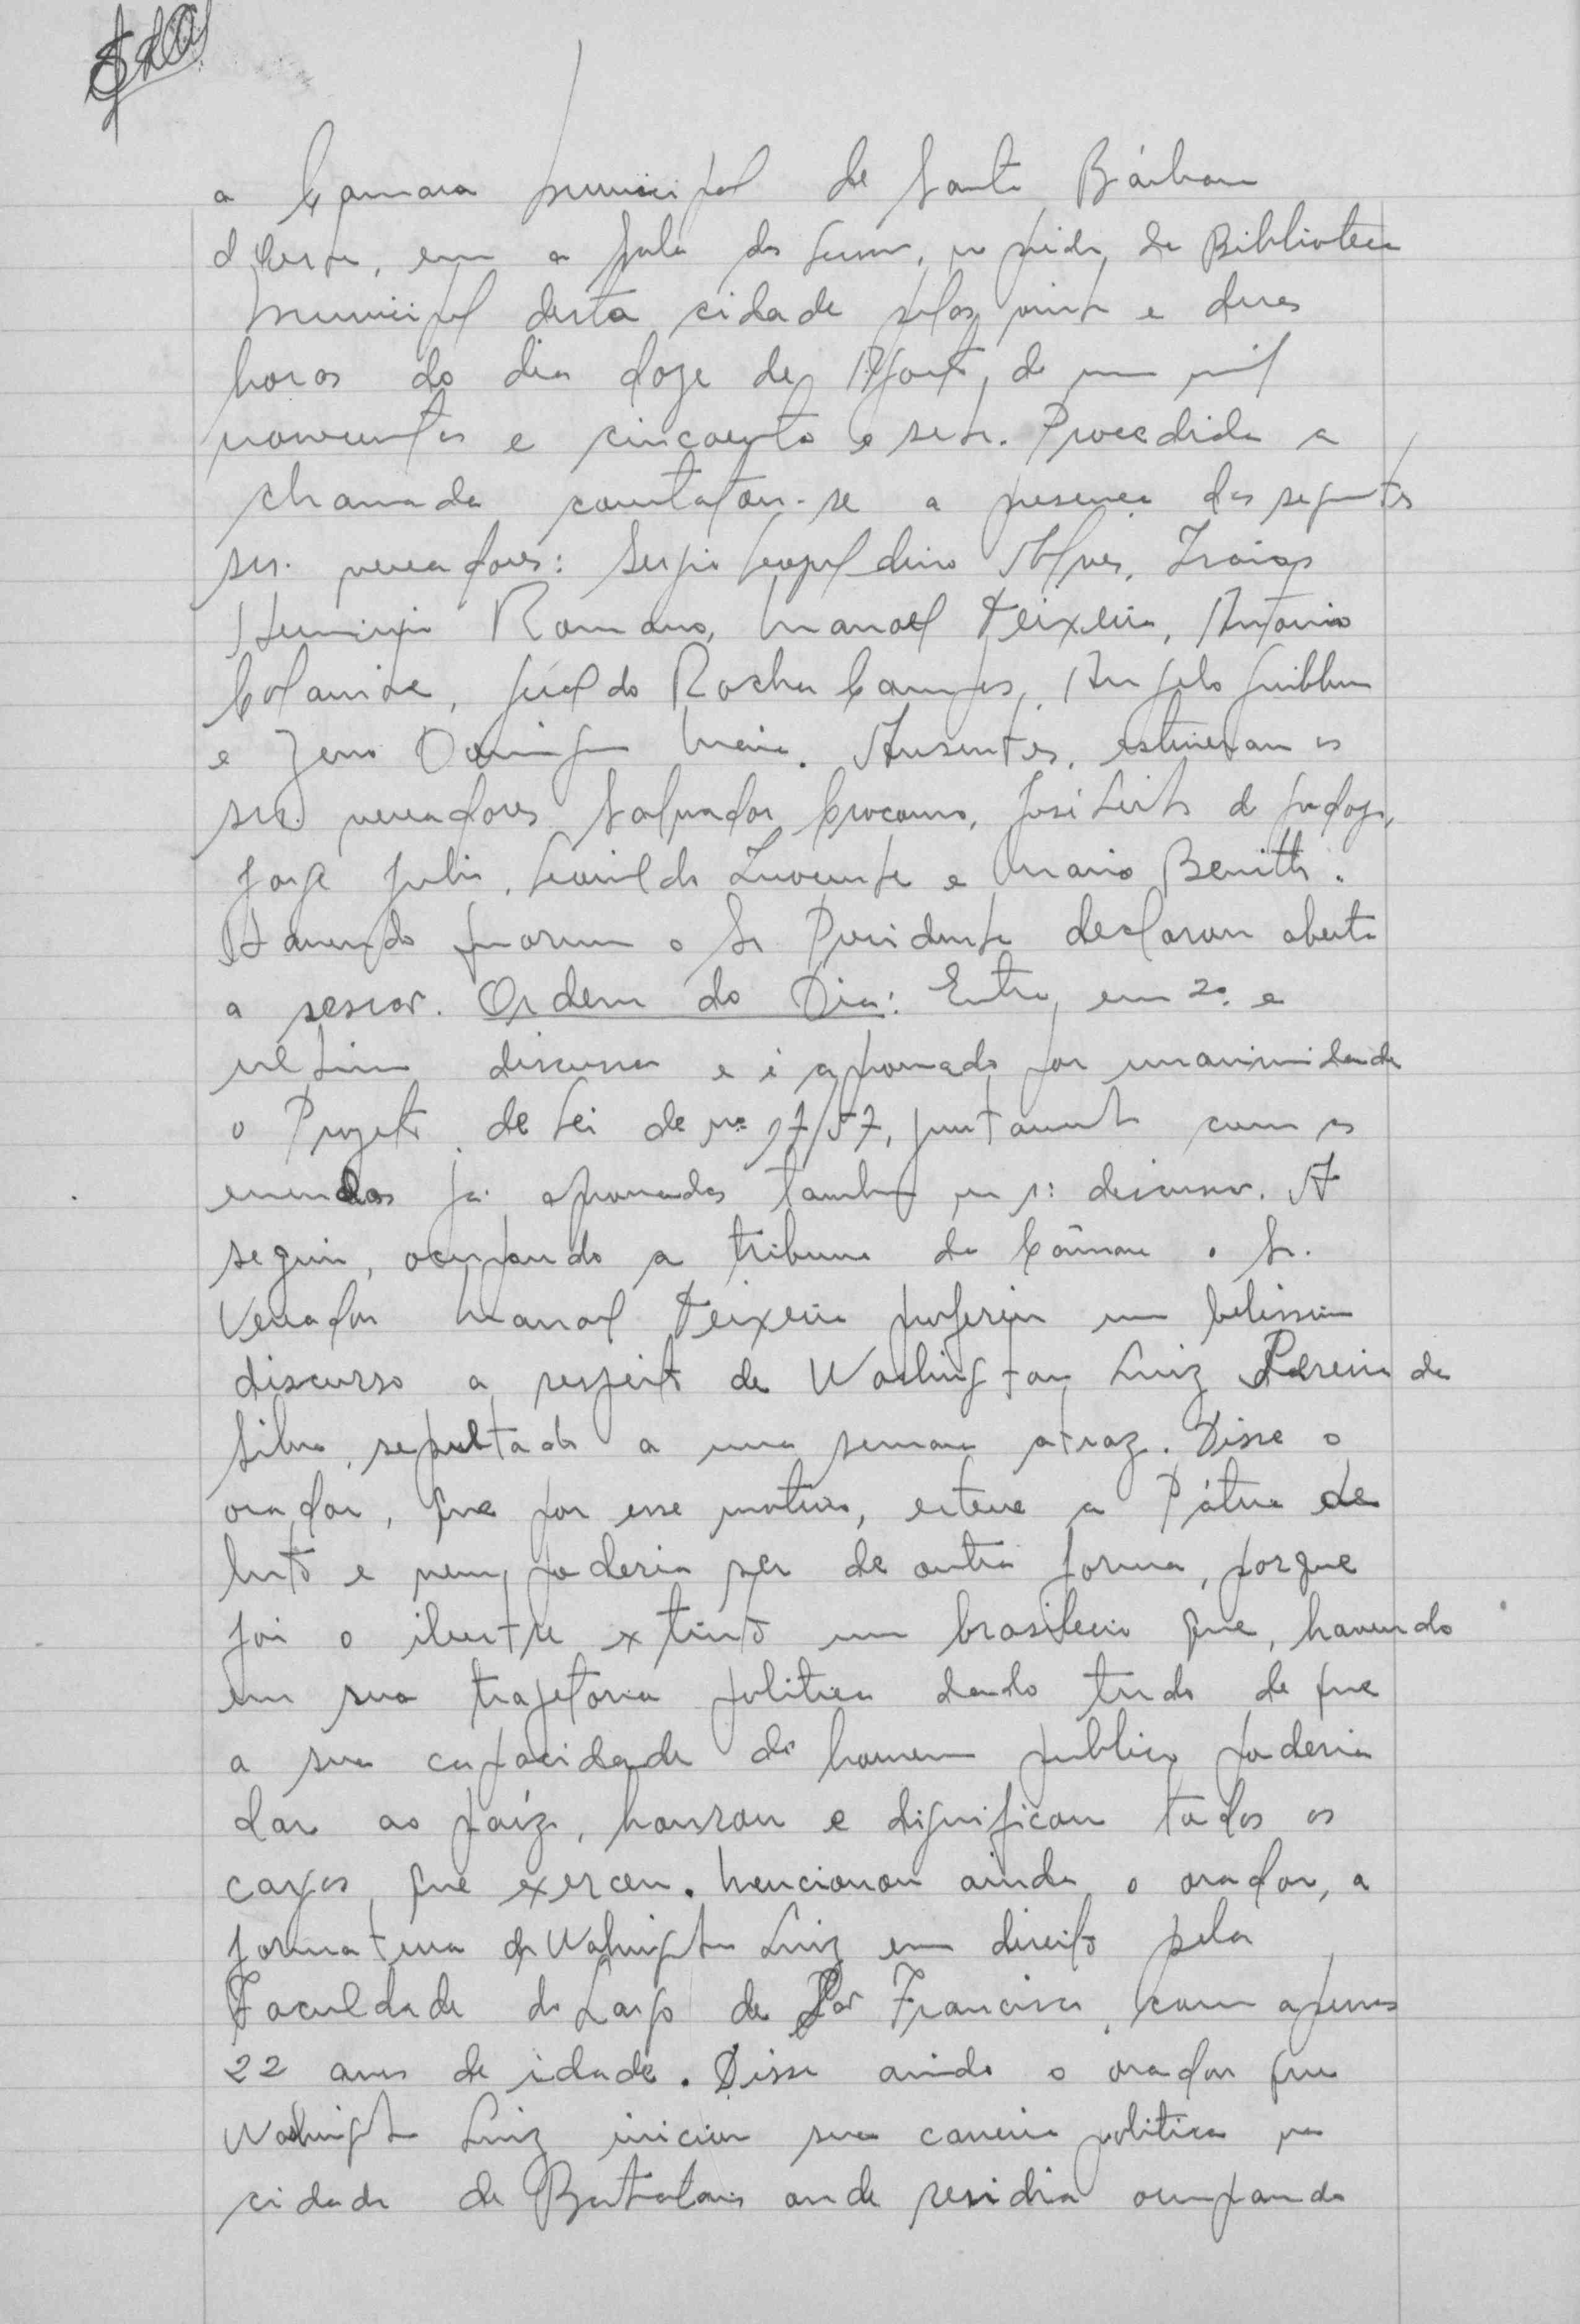 a Camara Municipal de Santa Bárbara
d'Oeste, em a sala das sessões, no prédio da Biblioteca
Municipal desta cidade pelas vinte e duas
horas do dia doze de Agosto de um mil
novecentos e cincoenta e sete. Procedida a
chamada constatou-se a presença dos seguintes
srs. vereadores: Sergio Leopoldino Alves, Izaias
Herminio Romano, Manoel Teixeira, Antonio
Colamide, Geraldo Rocha Campos, Angelo Guilherme
e Zeno Domingues Maia. Ausentes, estiveram os
srs. vereadores Salvador Crocomo, José Leite de Godoy,
Jorge Julio, Leonildo Inocente e Mario Benitto.
Havendo quorum o Sr. Presidente declarou aberta
a sessão. Ordem do Dia: Entra em 2ª. e
ultima discussão e é aprovado por unanimidade
o Projeto de Lei de nº 17/57, juntamente com as
emendas já aprovadas tambem em 1ª discussão. A
seguir, ocupando a tribuna da Câmara o Sr.
Vereador Manoel Teixeira proferiu um belissimo
discurso a respeito de Washington Luiz Pereira da
Silva, sepultado a uma semana atraz. Disse o
orador, que por esse motivo, esteve a Pátria de
luto e nem poderia ser de outra forma, porque
foi o ilustre extinto um brasileiro que, havendo
em sua trajetoria politica dando tudo de que
a sua capacidade de homem publico poderia
dar ao paíz, honrou e dignificou todos os
cargos que exerceu. Mencionou ainda o orador, a
formatura de Washington Luiz em direito pela
Faculdade do Largo de São Francisco, com apenas
22 anos de idade. Disse ainda o orador que
Washington Luiz iniciou sua carreira politica na
cidade de Batatais onde residia ocupando